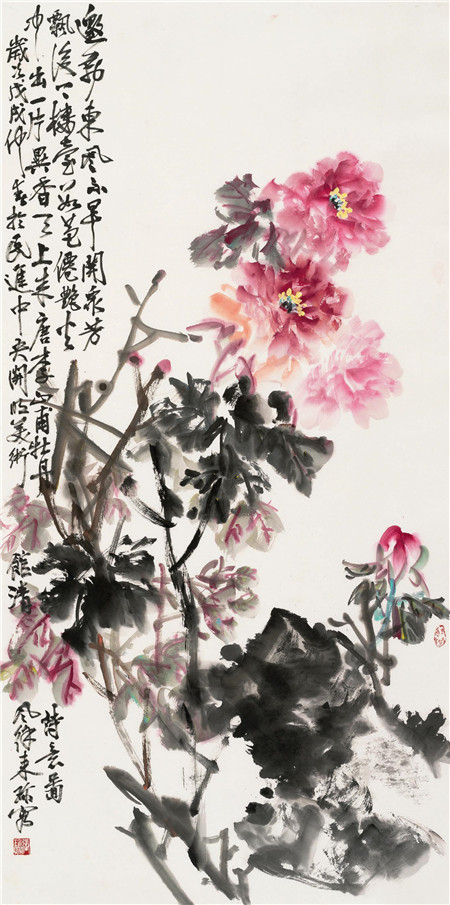 邀勒東風不早開眾芳
飄後上樓臺數苞僊艷火
中出一片異香天上來唐李山甫牡丹
詩意圖
歲次戊戌仲春於民進中央開明美術館清
風徐東寫